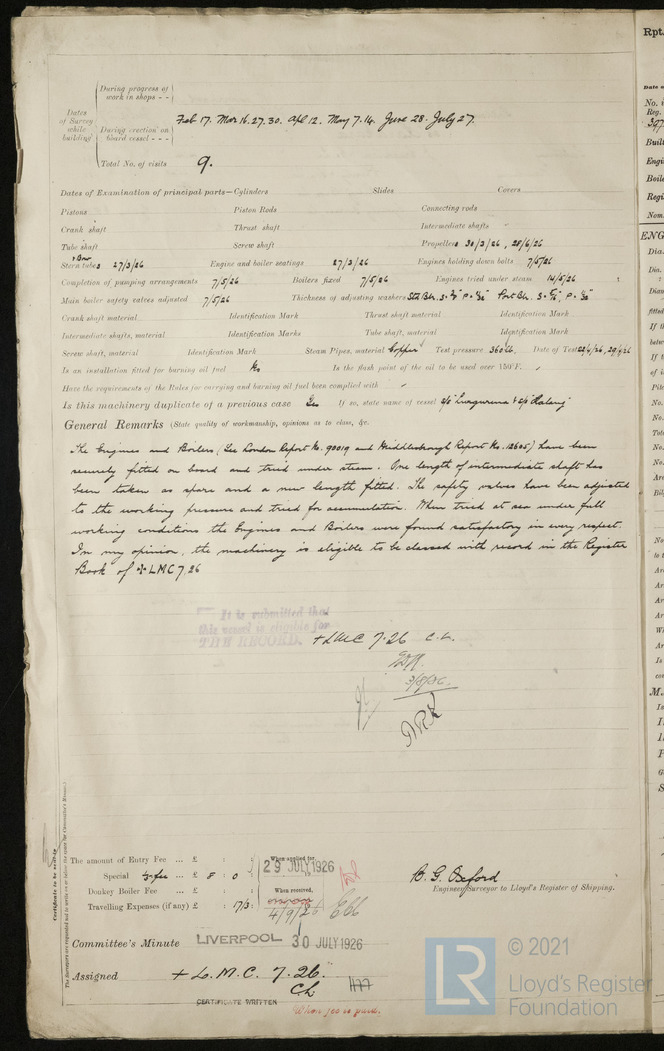 During progress of work in shops - -
Dates of Survey while building
Feb 17. Mar 16. 27. 30. Apl 12. May 7. 14. June 28. July 27.
During erection on board vessel - - -
Total No. of visits 9.
Dates of Examination of principal parts—Cylinders Slides Covers
Pistons Piston Rods Connecting rods
Crank shaft Thrust shaft Intermediate shafts
Tube shaft Screw shaft Propellers 30/3/26, 28/6/26
Stern tubes 27/3/26 Engine and boiler seatings 27/3/26 Engines holding down bolts 7/5/26
Completion of pumping arrangements 7/5/26 Boilers fixed 7/5/26 Engines tried under steam 14/5/26
Main boiler safety valves adjusted 7/5/26 Thickness of adjusting washers
Crank shaft material Identification Mark Thrust shaft material Identification Mark
Intermediate shafts, material Identification Marks Tube shaft, material Identification Mark
Screw shaft, material Identification Mark Steam Pipes, material Copper Test pressure 360 lb. Date of Test
Is an installation fitted for burning oil fuel No Is the flash point of the oil to be used over 150°F.
Have the requirements of the Rules for carrying and burning oil fuel been complied with
Is this machinery duplicate of a previous case Yes If so, state name of vessel
General Remarks (State quality of workmanship, opinions as to class, &c.
The Engines and Boilers (See London Report No. 90019 and Middlesbrough Report No. 12605) have been
securely fitted on board and tried under steam. One length of intermediate shaft has
been taken as spare and a new length fitted. The safety valves have been adjusted
to the working pressure and tried for accumulation. When tried at sea under full
working conditions the Engines and Boilers were found satisfactory in every respect.
In my opinion, the machinery is eligible to be classed with record in the Register
Book of + LMC 7.26
It is submitted that
this vessel is eligible for
THE RECORD. + LMC 7.26 C.L.
3/8/26.
The amount of Entry Fee ... £ : :
When applied for,
Special ... £ 8 : 0 :
29 JULY 1926
Donkey Boiler Fee ... £ : :
When received,
Travelling Expenses (if any) £ : 17/3 :
4/9/26
B. G. Oxford
Engineer Surveyor to Lloyd's Register of Shipping.
Committee's Minute LIVERPOOL 30 JULY 1926
Assigned + L.M.C. 7.26.
CL
CERTIFICATE WRITTEN
When fee is paid.
Certificate to be sent to
© 2021
Lloyd's Register
Foundation
LR
Rpt.